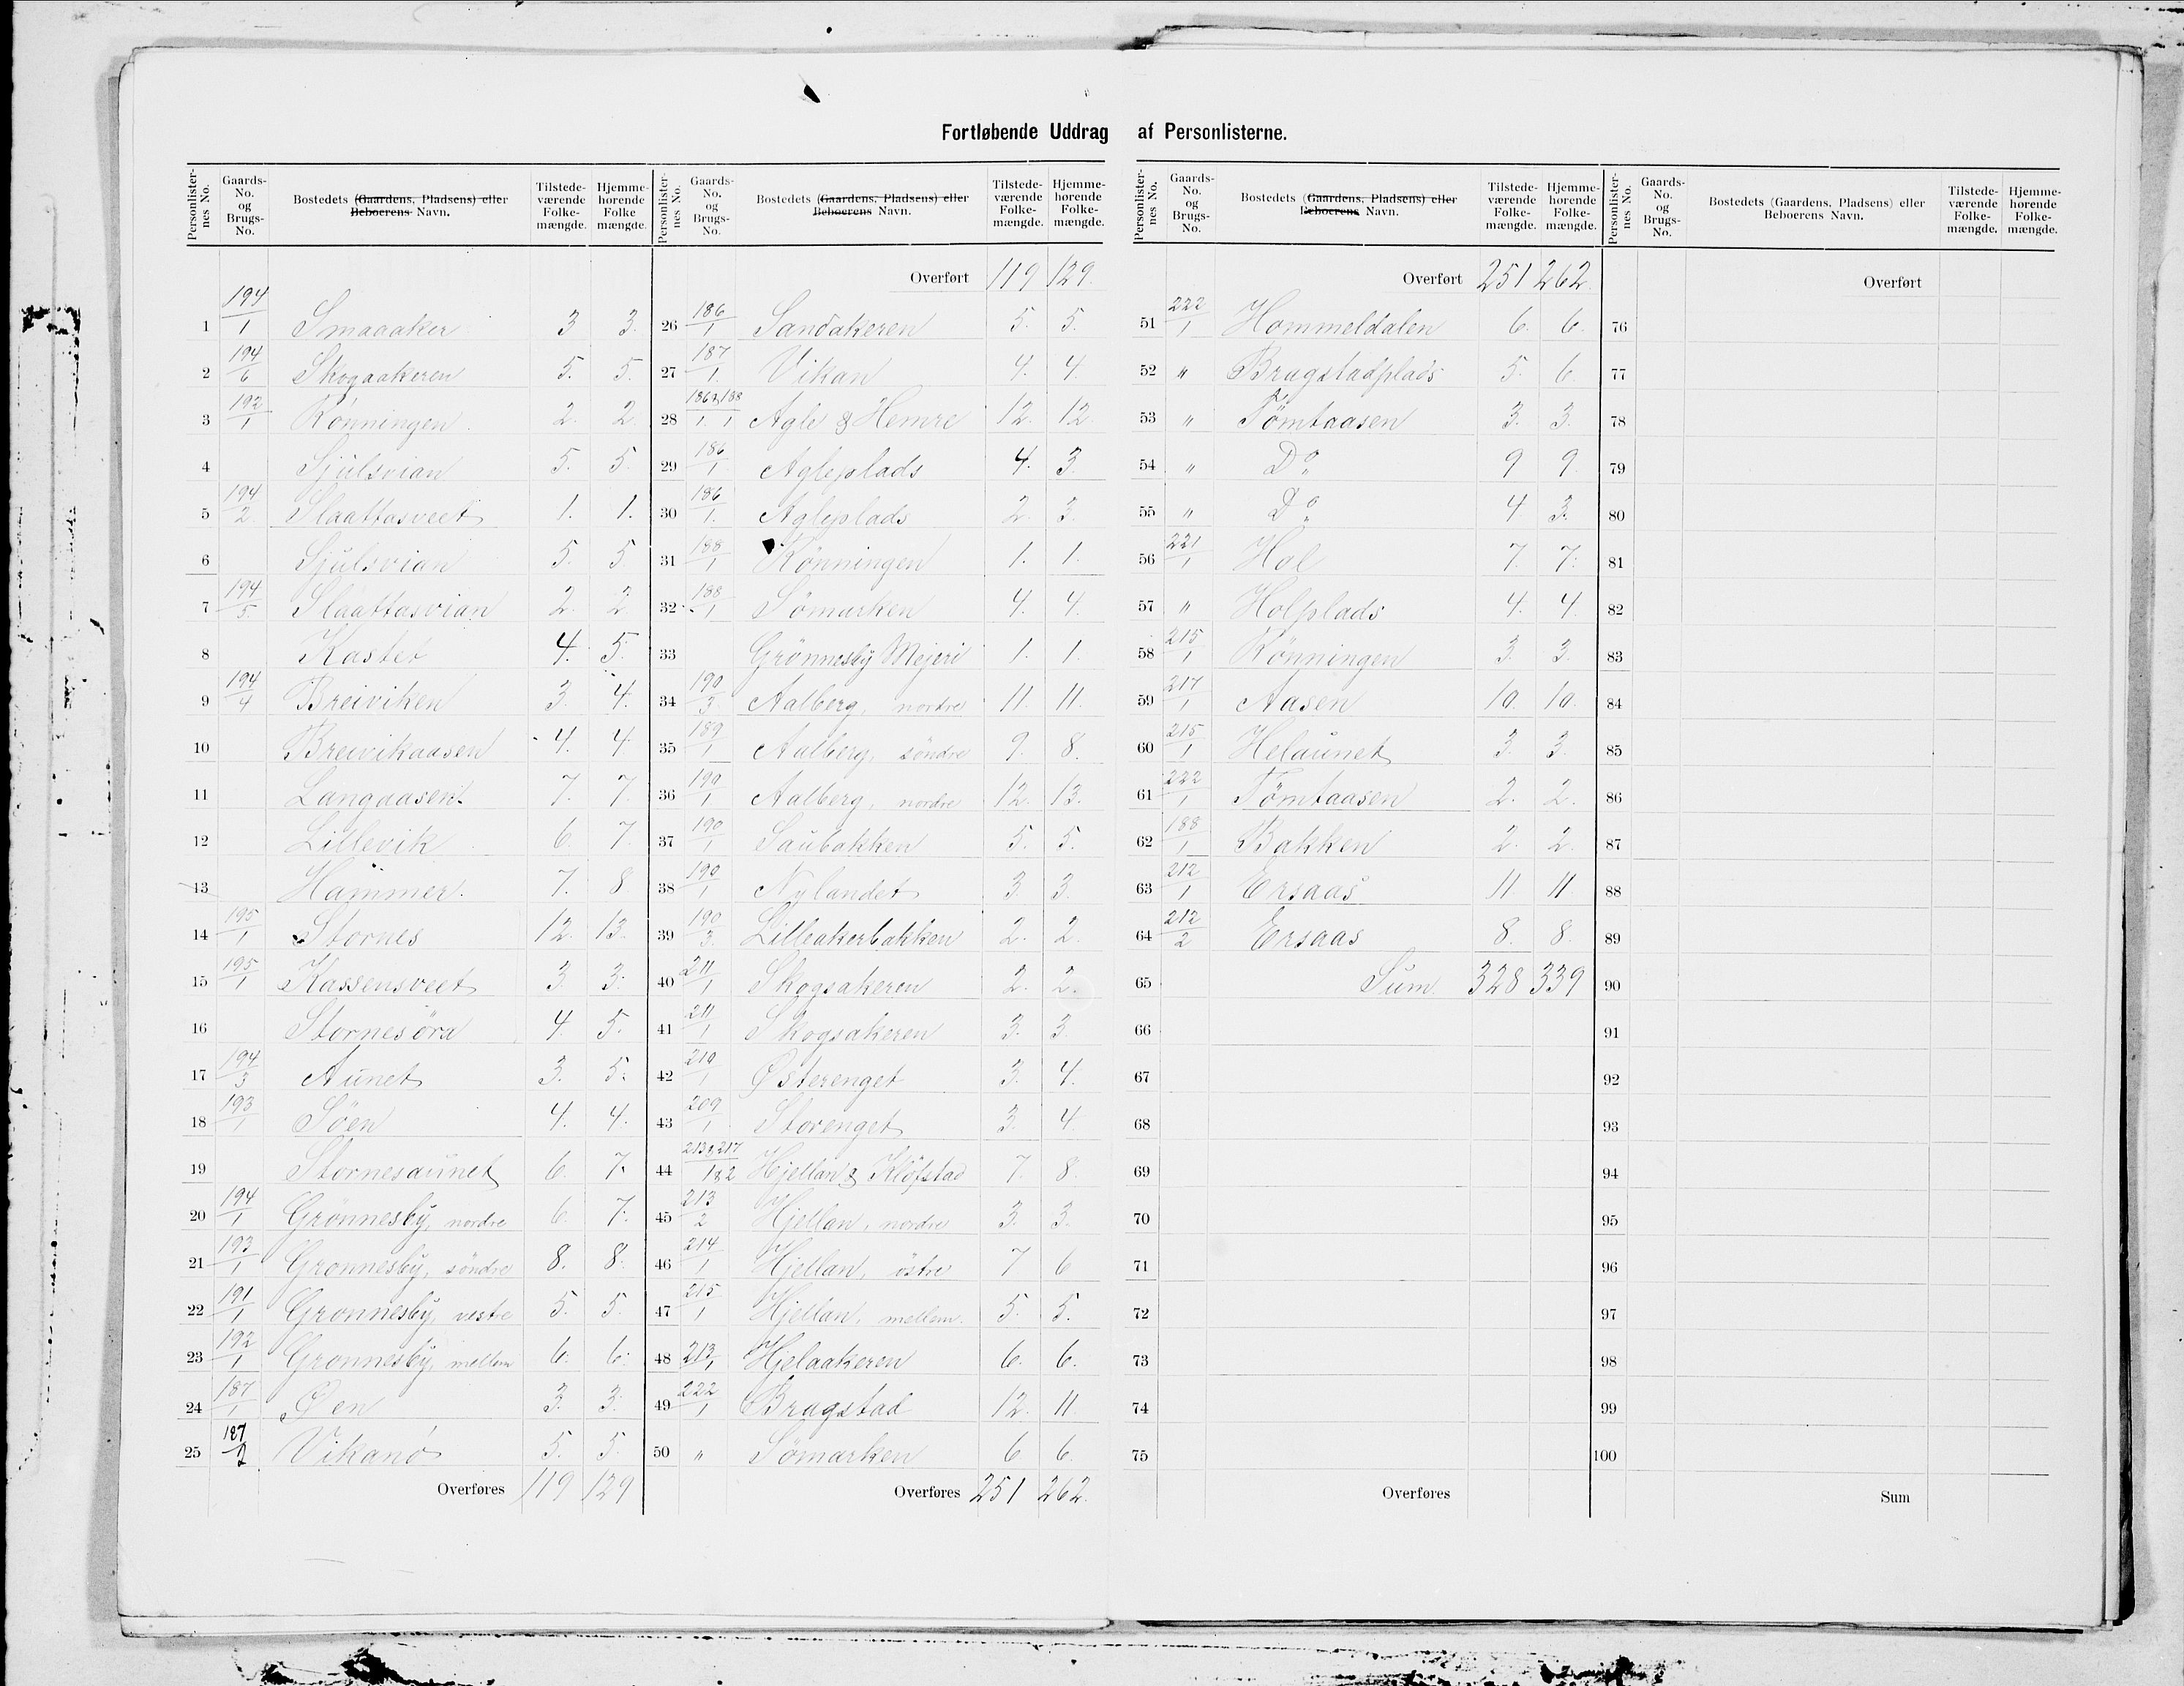 Fortløbende Uddrag af Personlisterne.
Personlister-nes No. Gaards-No. og Brugs-No. Bostedets (Gaardens, Pladsens) eller Beboerens Navn. Tilstede-værende Folke-mængde. Hjemme-hørende Folke mængde.
1 194/1 Smaaaker 3 3.
2 194/6 Skogaakeren 5. 5.
3 192/1 Rönningen 2. 2
4 Sjulsvian 5. 5.
5 194/2 Slaattasveet 1. 1.
6 Sjulsvian 5. 5
7 194/5 Slaattasvian 2. 2.
8 Kastet 4. 5.
9 194/4 Breiviken 3. 4.
10 Breivikaasen 4. 4
11 Langaasen. 7. 7.
12 Lillevik 6. 7.
13 Hammer. 7. 8
14 195/1 Stornes 12. 13.
15 195/1 Kassensveet 3. 3.
16 Stornesöra 4. 5.
17 194/3 Aunet 3. 5.
18 193/1 Söen 4. 4.
19 Stornesaunet 6. 7.
20 194/1 Grönnesby, nordre 6. 7.
21 193/1 Grönnesby, söndre 8. 8.
22 191/1 Grönnesby, vestre 5. 5.
23 192/1 Grönnesby, mellem 6. 6.
24 187/1 Øen 3. 3.
25 187/2 Vikanö 5. 5.
Overføres 119 129
Personlister-nes No. Gaards-No. og Brugs-No. Bostedets (Gaardens, Pladsens) eller Beboerens Navn. Tilstede-værende Folke-mængde. Hjemme-hørende Folke-mængde.
Overført 119 129.
26 186/1 Sandakeren 5. 5.
27 187/1. Vikan 4. 4.
28 186 & 188/1. 1 Agle & Hemre 12. 12.
29 186/1 Agleplads 4. 3.
30 186/1. Agleplads 2. 3.
31 188/1 Rönningen 1. 1.
32 188/1 Sömarken 4. 4.
33 Grönnesby Mejeri 1. 1.
34 190/3. Aalberg, nordre 11. 11.
35 189/1 Aalberg, söndre 9. 8.
36 190/1 Aalberg, nordre 12. 13.
37 190/1 Saubakken 5. 5.
38 190/1 Nylandet 3. 3.
39 190/3. Lilleakerbakken 2. 2.
40 211/1 Skogsakeren 2. 2.
41 211/1 Skogsakeren 3. 3
42 210/1 Østerenget 3. 4.
43 209/1 Storenget 3. 4.
44 213 & 217/1 & 2 Hjellan & Klöfstad 7. 8.
45 213/2 Hjellan, nordre 3. 3.
46 214/1 Hjellan, östre 7 6
47 215/1 Hjellan, mellem. 5. 5.
48 213/1 Hjelaakeren 6. 6.
49 222/1 Brugstad 12. 11.
50 " Sömarken 6 6.
Overføres 251 262.
Personlister-nes No. Gaards-No. og Brugs-No. Bostedets (Gaardens, Pladsens) eller Beboerens Navn. Tilstede-værende Folke-mængde. Hjemme-hørende Folke-mængde.
Overført 251 262.
51 222/1 Hommeldalen 6. 6.
52 " Brugstadplads 5. 6.
53 " Tömtaasen 3. 3.
54 " Do 9 9.
55 " Do 4 3.
56 221/1 Hol 7. 7.
57 " Holplads 4. 4.
58 215/1 Rönningen 3. 3.
59 217/1 Aasen 10. 10.
60 215/1 Helaunet 3. 3.
61 222/1 Tömtaasen 2. 2.
62 188/1 Bakken 2. 2.
63 212/1 Ersaas 11 11
64 212/2 Ersaas 8. 8.
65 Sum 328 339
66
67
68
69
70
71
72
73
74
75
Overføres
Personlister-nes No. Gaards-No. og Brugs-No. Bostedets (Gaardens, Pladsens) eller Beboerens Navn. Tilstede-værende Folke-mængde. Hjemme-hørende Folke-mængde.
Overført
76
77
78
79
80
81
82
83
84
85
86
87
88
89
90
91
92
93
94
95
96
97
98
99
100
Sum